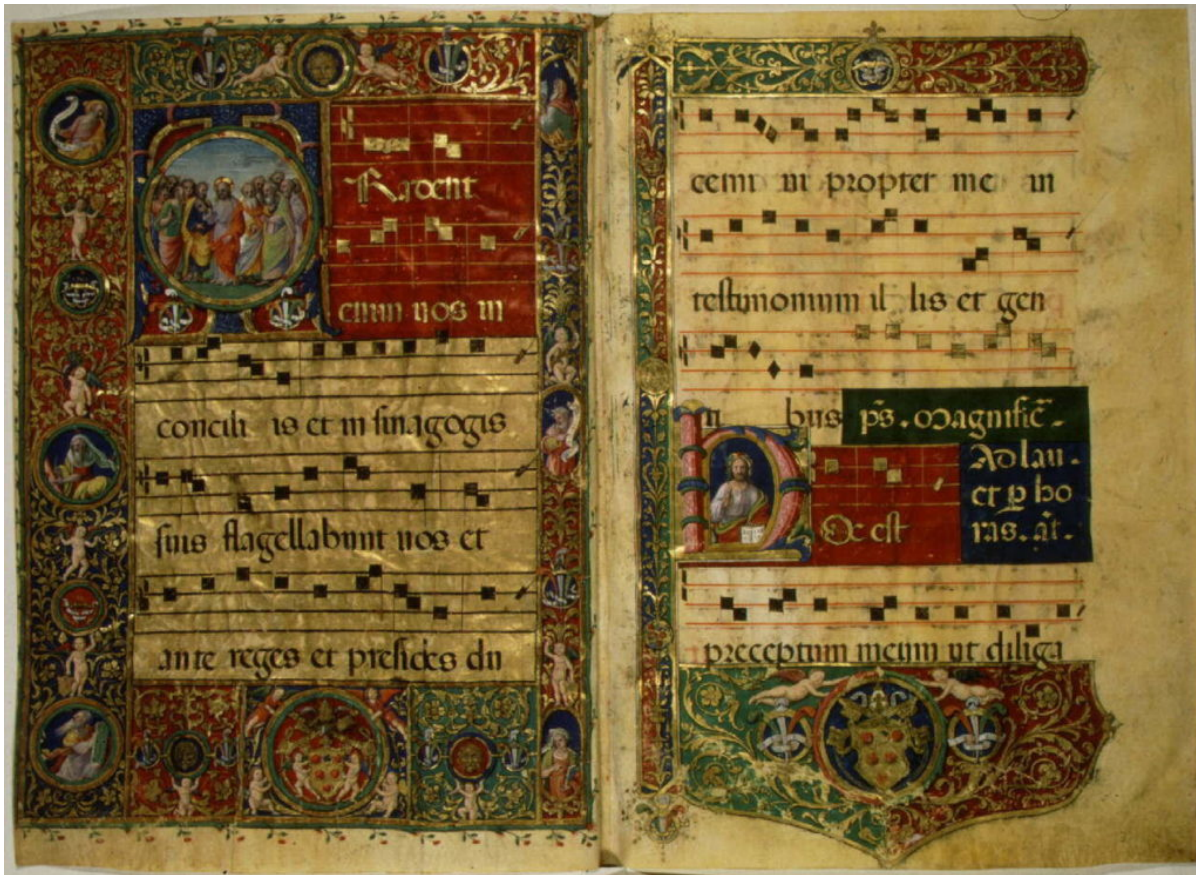 Tradent
enim vos in
concili is et in sinagogis
suis flagellabunt vos et
ante reges et presides du
cemi ni propter me in
testimonium il lis et gen
ti bus ps. Magnific̄.
Ad lau.
et p̲ ho
ras. añ.
Hoc est
preceptum meum ut diliga